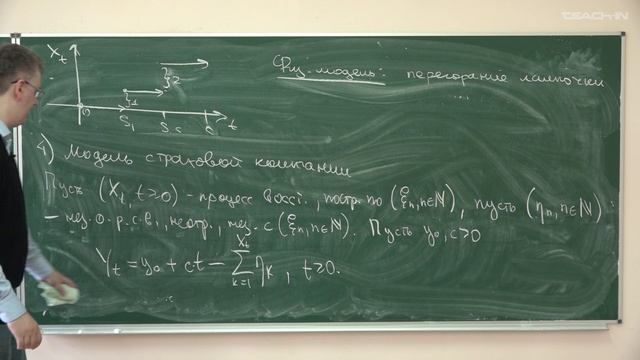 TEACH-IN
X_t
ξ_1
ξ_2
0 S_1 S_2 t
Физ. модель: перегорание лампочки
4) Модель страховой компании
Пусть (X_t, t≥0) - процесс восст., постр. по (ξ_n, n∈ℕ), пусть (η_n, n∈ℕ) :
- нез. о.р.с.в., неотр., нез. с (ξ_n, n∈ℕ). Пусть y_0, c>0
Y_t = y_0 + ct - ∑_{k=1}^{X_t} η_k , t≥0.